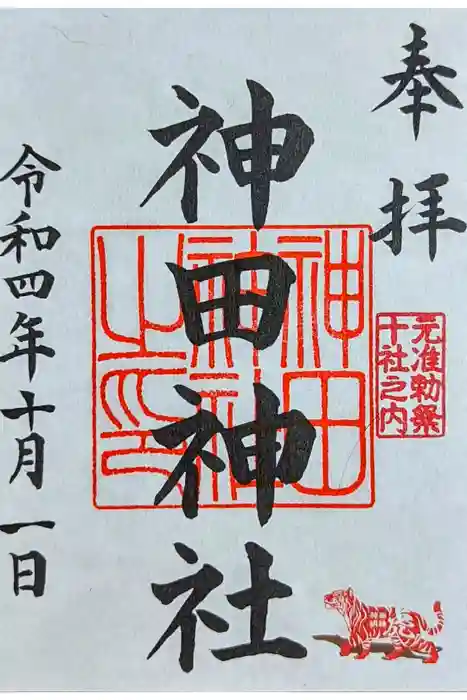 奉拝
元准勅祭
十社之内
神田神社
神田
神社
之印
令和四年十月一日